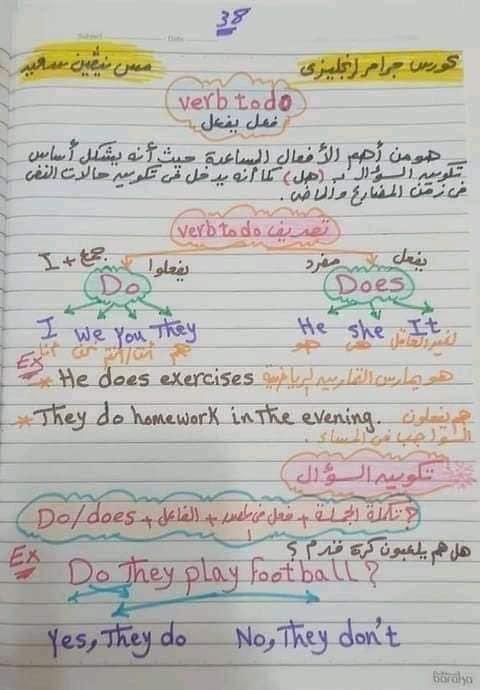 38
Subject
Date
كورس جرامر إنجليزى
مس نيڤين سعيد
verb to do
فعل يفعل
هو من أهم الأفعال المساعدة حيث أنه يشكل أساس
تكوين السؤال بـ (هل) كما أنه يدخل فى تكوين حالات النفى
فى زمن المضارع والماضى.
تصريف verb to do
I + جمع
يفعلوا
مفرد
يفعل
Do
Does
I we You They
He she It
أنا
نحن
أنت/أنتم
هم
هو
هى
لغير العاقل
Ex
* He does exercises هو يمارس التمارين الرياضية
* They do homework in The evening. هم يفعلون
الواجب فى المساء.
تكوين السؤال
Do/does + الفاعل + فعل فى + تكملة الجملة؟
Ex
هل هم يلعبون كرة قدم؟
Do They play football?
Yes, They do No, They don't